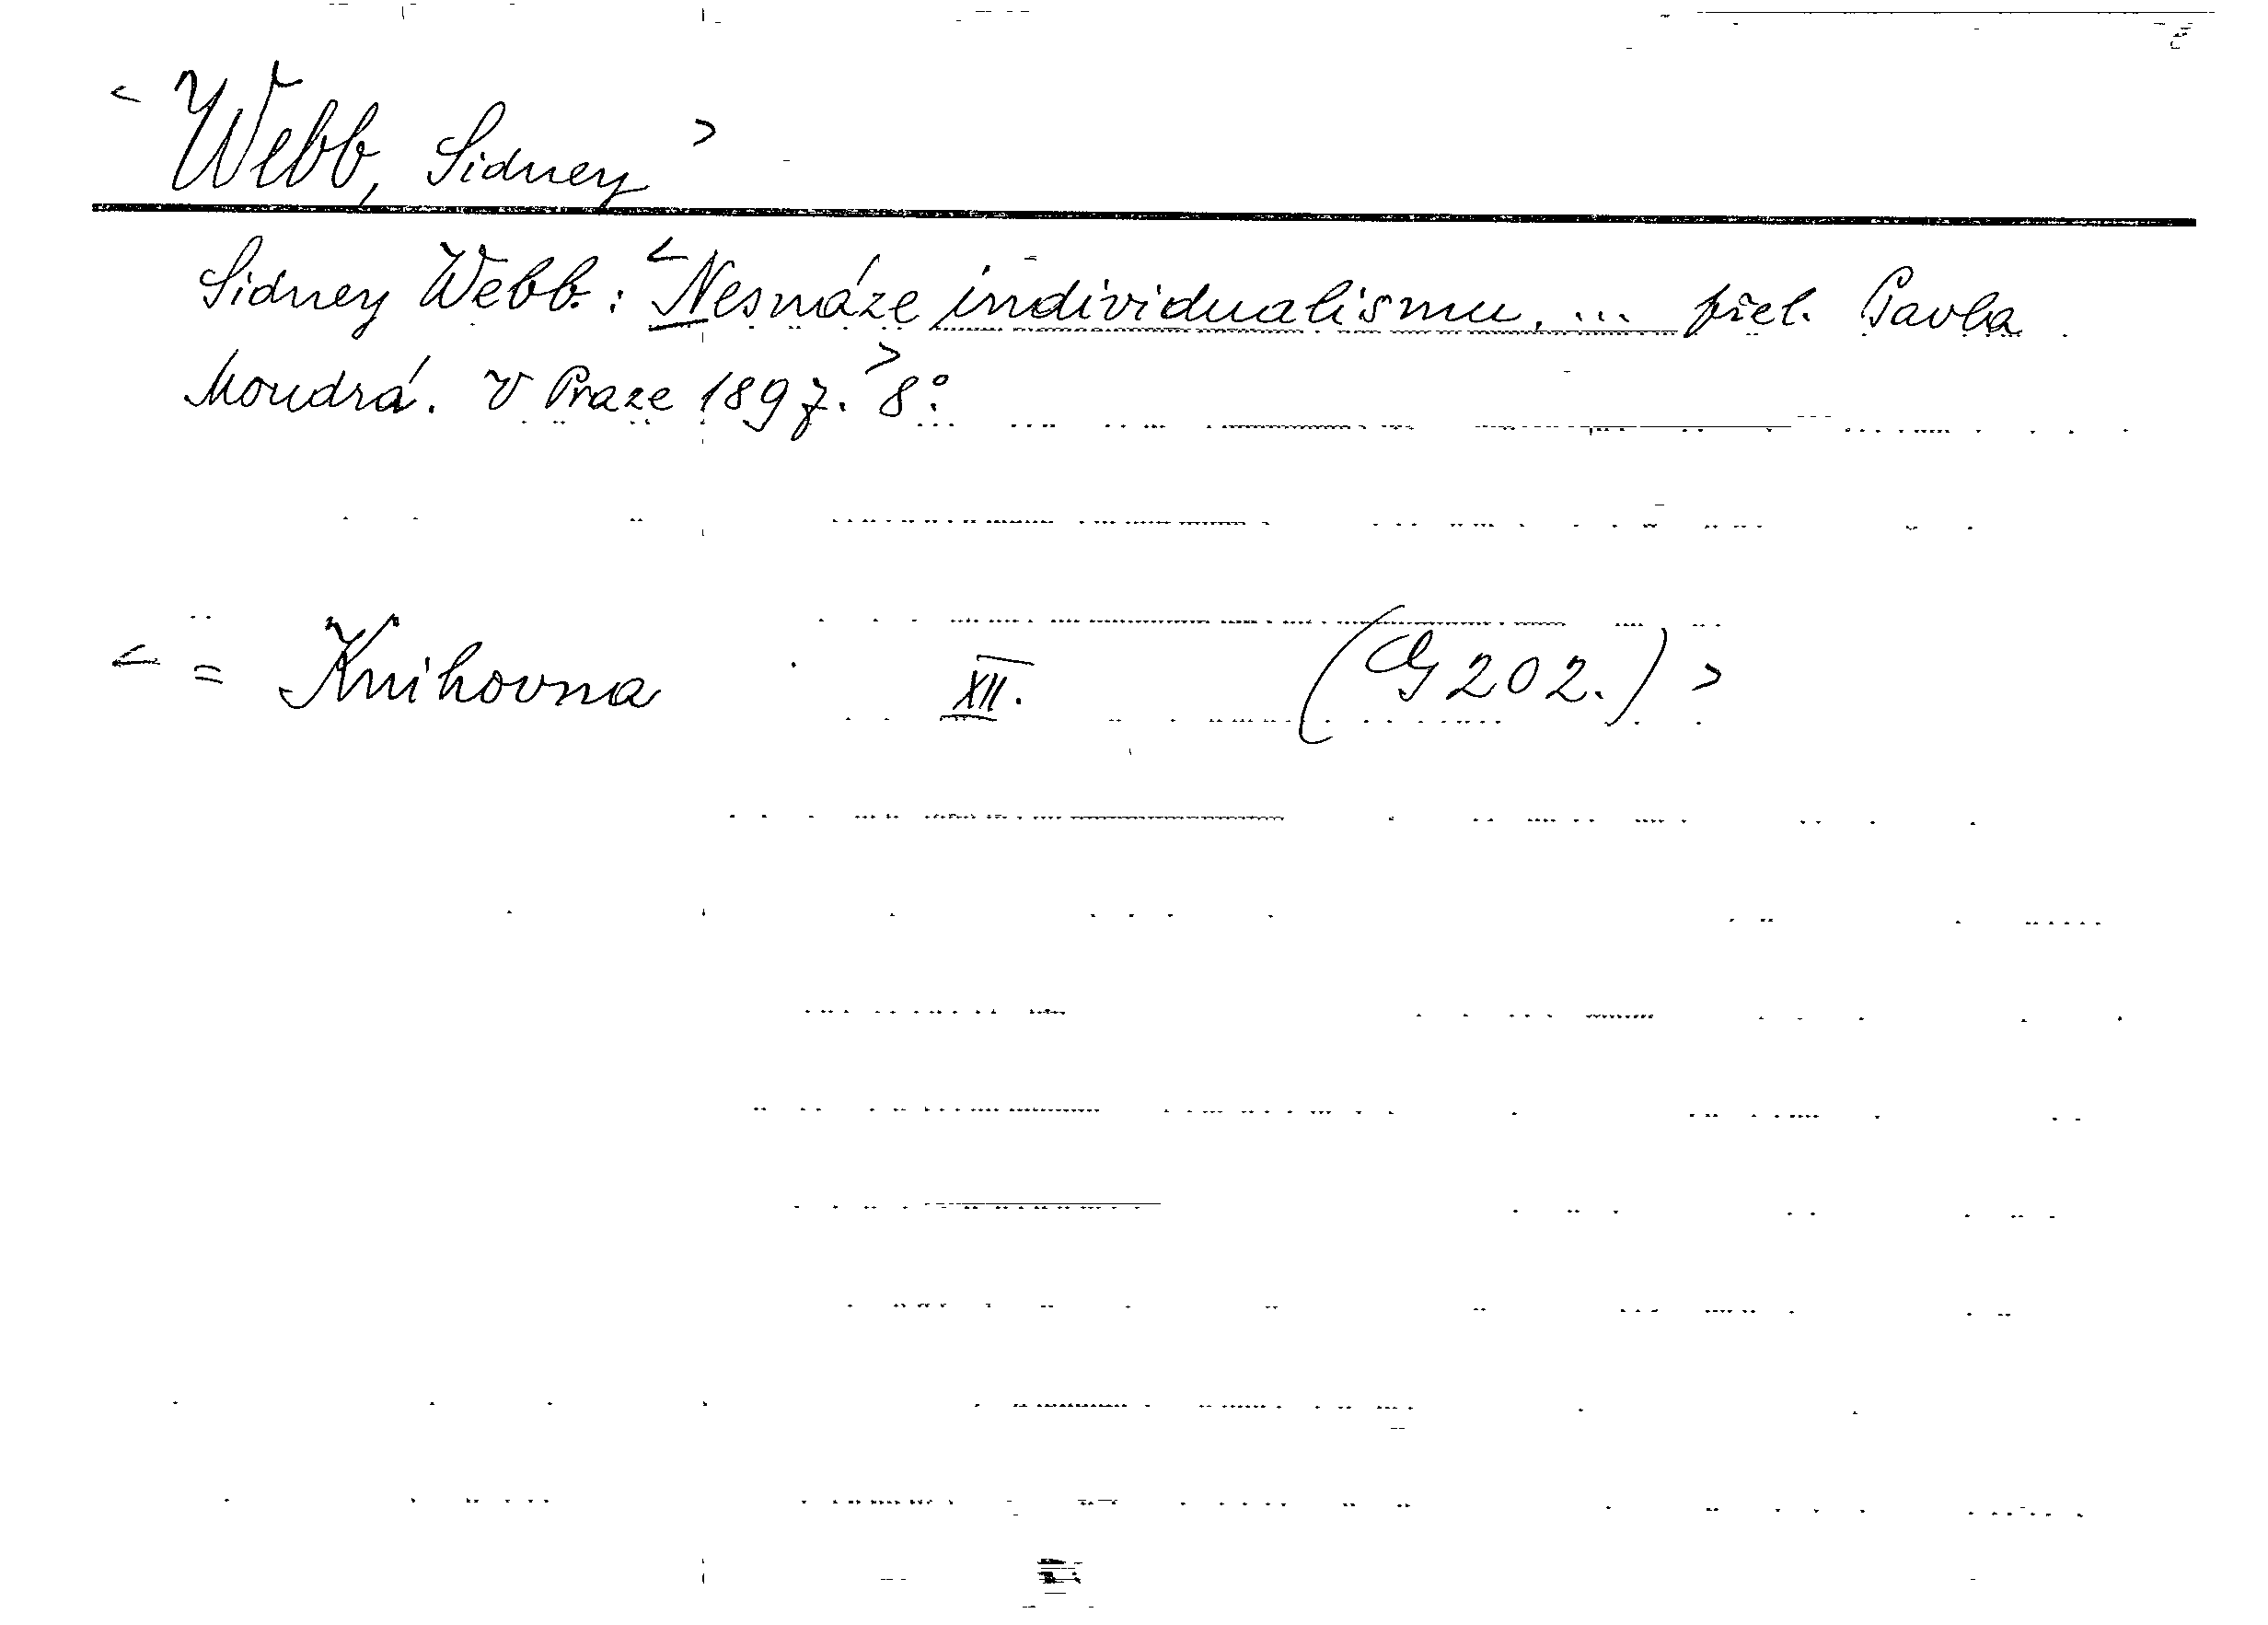 < Webb, Sidney >
Sidney Webb.: < Nesnáze individualismu. ... přel. Pavla
Moudrá. V Praze 1897. > 8°.
< = Knihovna XII. (G 202.) >